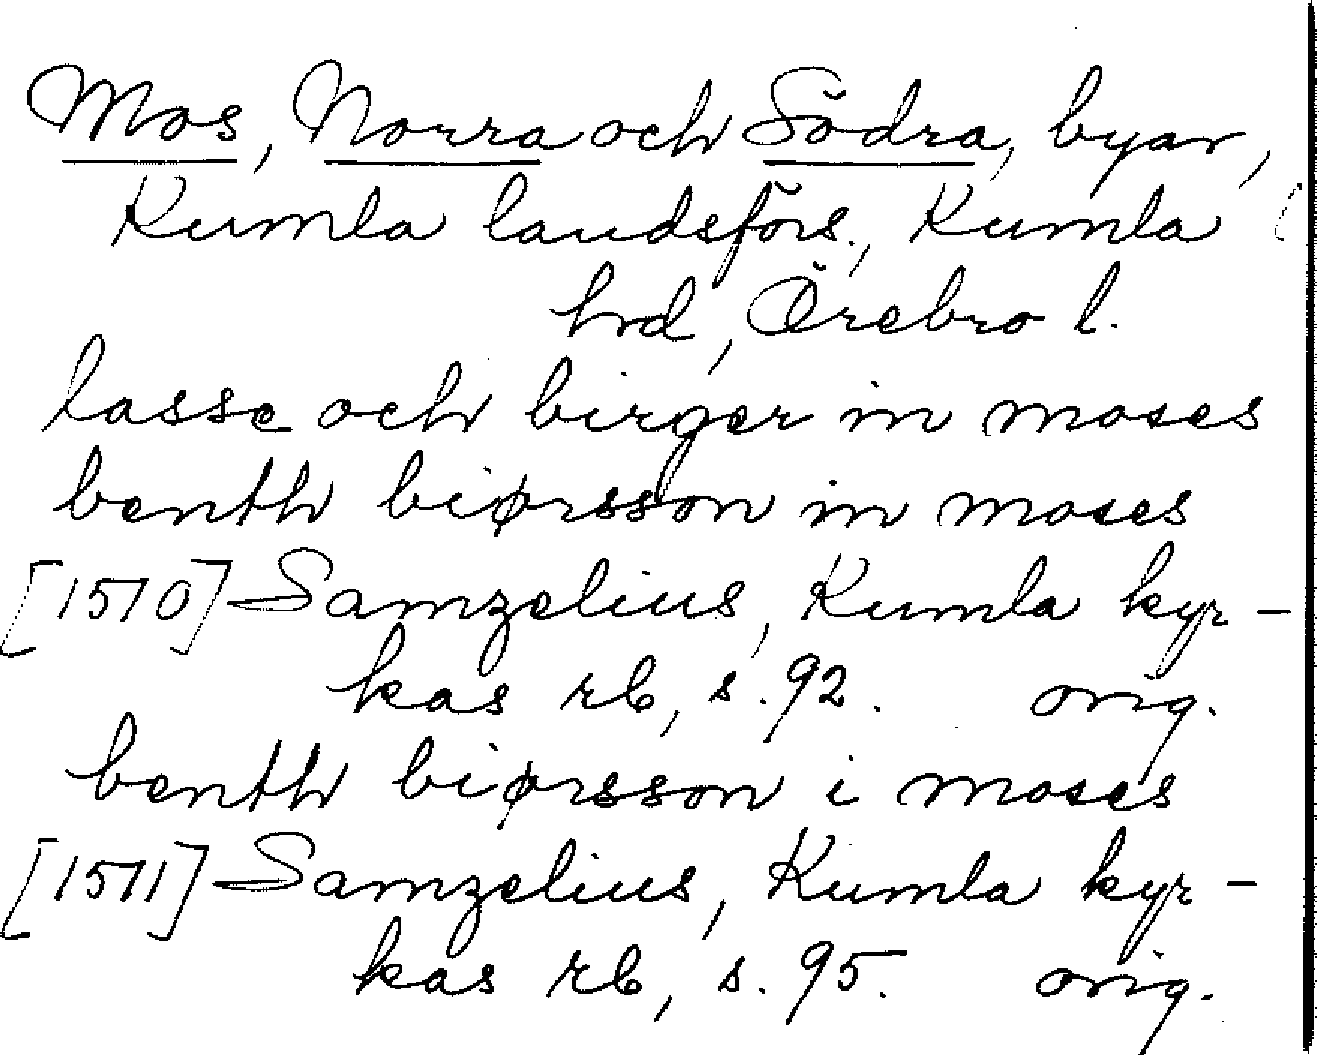 Mos, Norra och Södra, byar,
Kumla landsförs., Kumla
hrd, Örebro l.
lasse och birger in moses
benth biørsson in moses
[1570] Samzelius, Kumla kyr-
kas rb, s. 92. orig.
benth biørsson i moses
[1571] Samzelius, Kumla kyr-
kas rb, s. 95. orig.